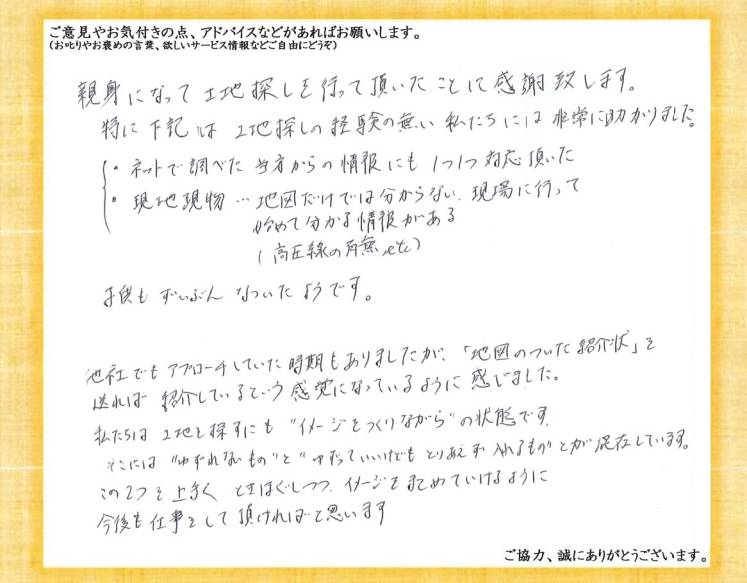 ご意見やお気付きの点、アドバイスなどがあればお願いします。
(お叱りやお褒めの言葉、欲しいサービス情報などご自由にどうぞ)
親身になって土地探しを行って頂いたことに感謝致します。
特に下記は土地探しの経験の無い私たちには非常に助かりました。
・ネットで調べた当方からの情報にも1つ1つ対応頂いた
・現地現物…地図だけでは分からない、現場に行って
始めて分かる情報がある
(高圧線の有無、etc)
子供もずいぶんなついたようです。
他社でもアプローチしていた時期もありましたが、「地図のついた紹介状」を
送れば紹介しているという感覚になっているように感じました。
私たちは土地を探すにも"イメージをつくりながら"の状態です。
そこには"ゆずれないもの"と"ゆずっていいけどもとりあえず入れるもの"とが混在しています。
この2つを上手くときほぐしつつ、イメージをまとめていけるように
今後も仕事をして頂ければと思います
ご協力、誠にありがとうございます。